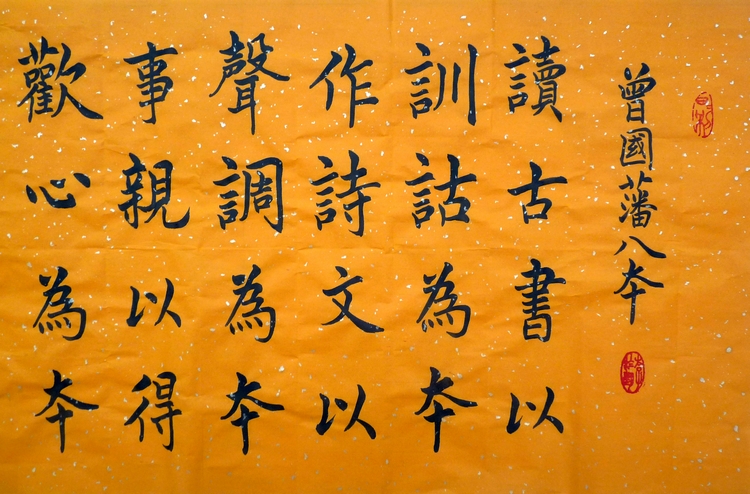 曾國藩八本
讀古書以
訓詁為本
作詩文以
聲調為本
事親以得
歡心為本